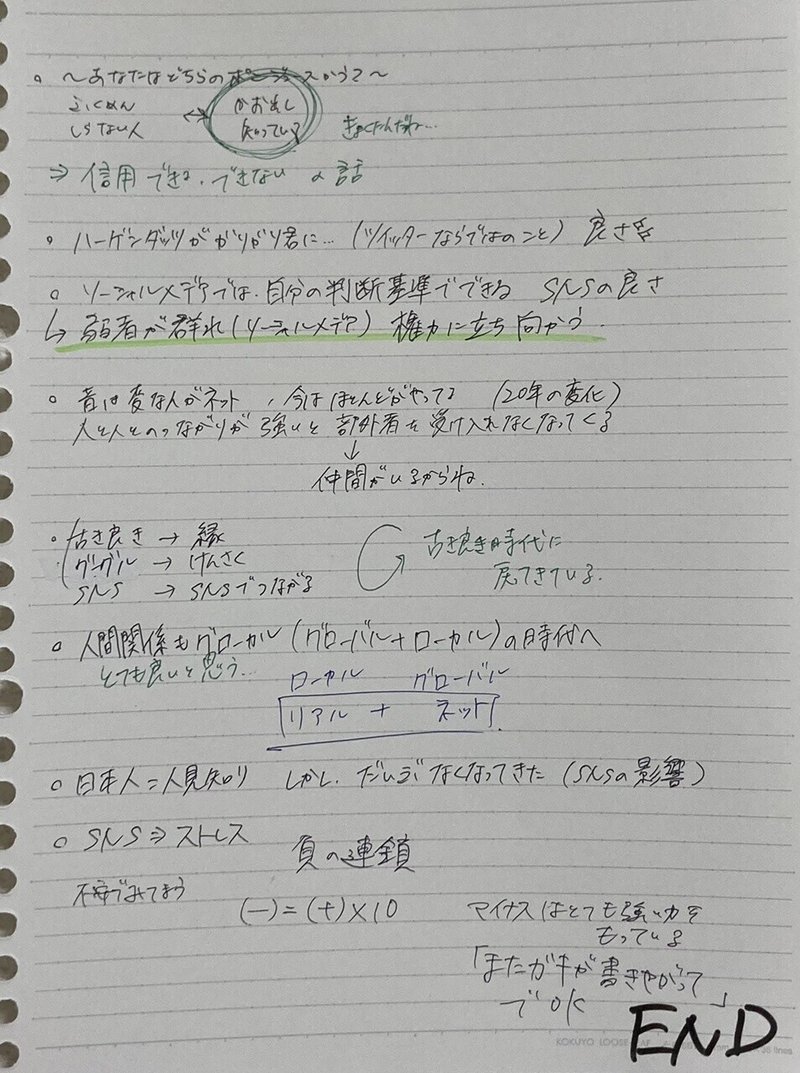 〜あなたはどちらのポンジュースかう？〜
ふくめん
しらない人
↔
かお出し
知っている
きょくたんだね…
⇒ 信用できる・できない の話
ハーゲンダッツがガリガリ君に…（ツイッターならではのこと） 良さ
ソーシャルメデアでは、自分の判断基準でできる SNSの良さ
↳ 弱者が群れ（ソーシャルメデア） 権力に立ち向かう
昔は変な人がネット、今はほとんどがやってる （20年の変化）
人と人とのつながりが強いと部外者を受け入れなくなってくる
↓
仲間がいるからね。
古き良き → 縁
グーグル → けんさく
SNS → SNSでつながる
古き良き時代に
戻てきている。
人間関係もグローカル（グローバル+ローカル）の時代へ
とても良いと思う…
ローカル グローバル
リアル + ネット
日本人=人見知り しかし、だいぶなくなってきた（SNSの影響）
SNS⇒ストレス
負の連鎖
不安でみてまう
(−)=(+)×10
マイナスはとても強い力を
もっている
「またガキが書きやがって」
でOK
END
KOKUYO LOOSE-LEAF
lines